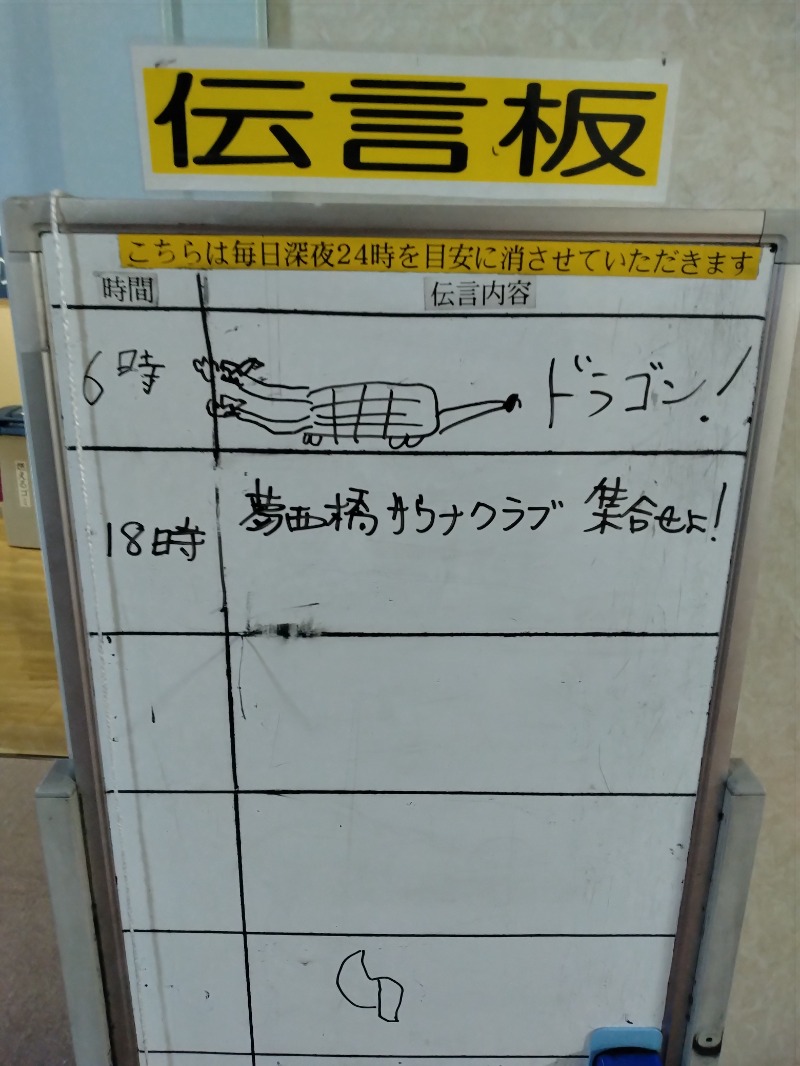 伝言板
こちらは毎日深夜24時を目安に消させていただきます
時間 伝言内容
6時 ドラゴン!
18時 葛西橋サウナクラブ 集合せよ!
燃えるゴミ